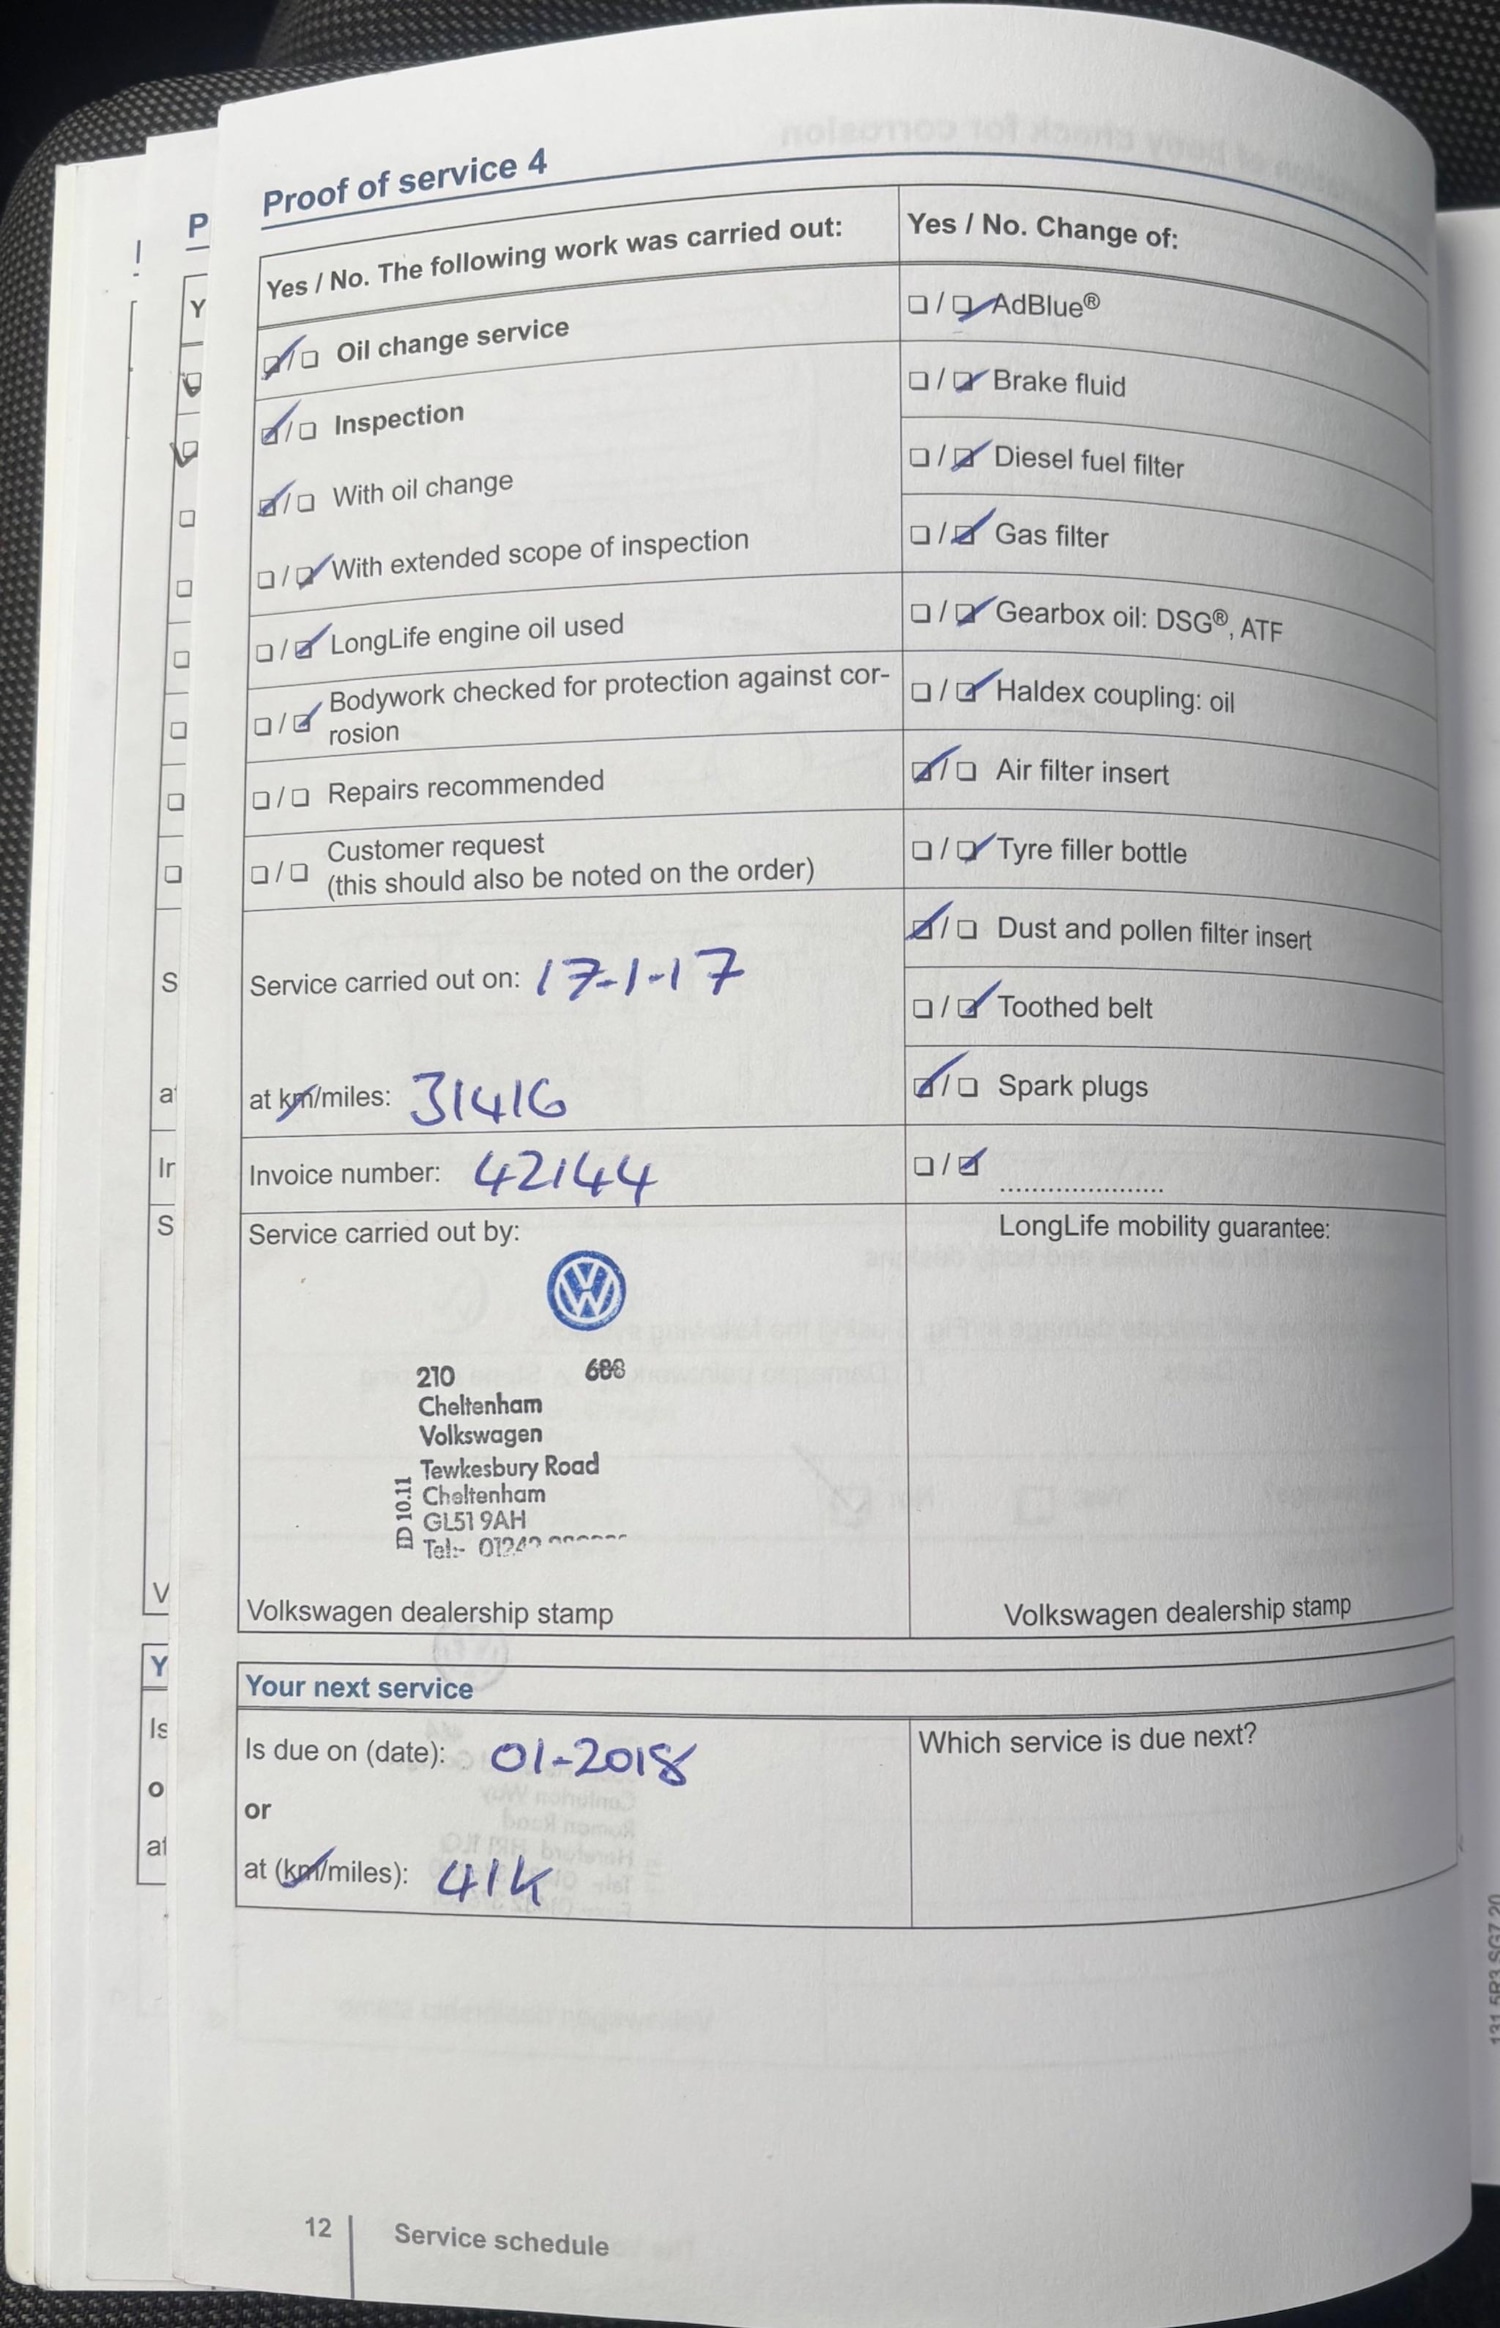 Proof of service 4
Yes / No. The following work was carried out:
☑/☐ Oil change service
☑/☐ Inspection
☑/☐ With oil change
☐/☑ With extended scope of inspection
☐/☑ LongLife engine oil used
☐/☑ Bodywork checked for protection against cor-
rosion
☐/☐ Repairs recommended
☐/☐ Customer request
(this should also be noted on the order)
Service carried out on: 17-1-17
at km/miles: 31416
Invoice number: 42144
Service carried out by:
210 688
Cheltenham
Volkswagen
Tewkesbury Road
Cheltenham
GL51 9AH
Tel:- 01242
ED 10.11
Volkswagen dealership stamp
Yes / No. Change of:
☐/☑ AdBlue®
☐/☑ Brake fluid
☐/☑ Diesel fuel filter
☐/☑ Gas filter
☐/☑ Gearbox oil: DSG®, ATF
☐/☑ Haldex coupling: oil
☑/☐ Air filter insert
☐/☑ Tyre filler bottle
☑/☐ Dust and pollen filter insert
☐/☑ Toothed belt
☑/☐ Spark plugs
☐/☑ .....................
LongLife mobility guarantee:
Volkswagen dealership stamp
Your next service
Is due on (date): 01-2018
or
at (km/miles): 41K
Which service is due next?
12 Service schedule
131.5R3.SG7.20